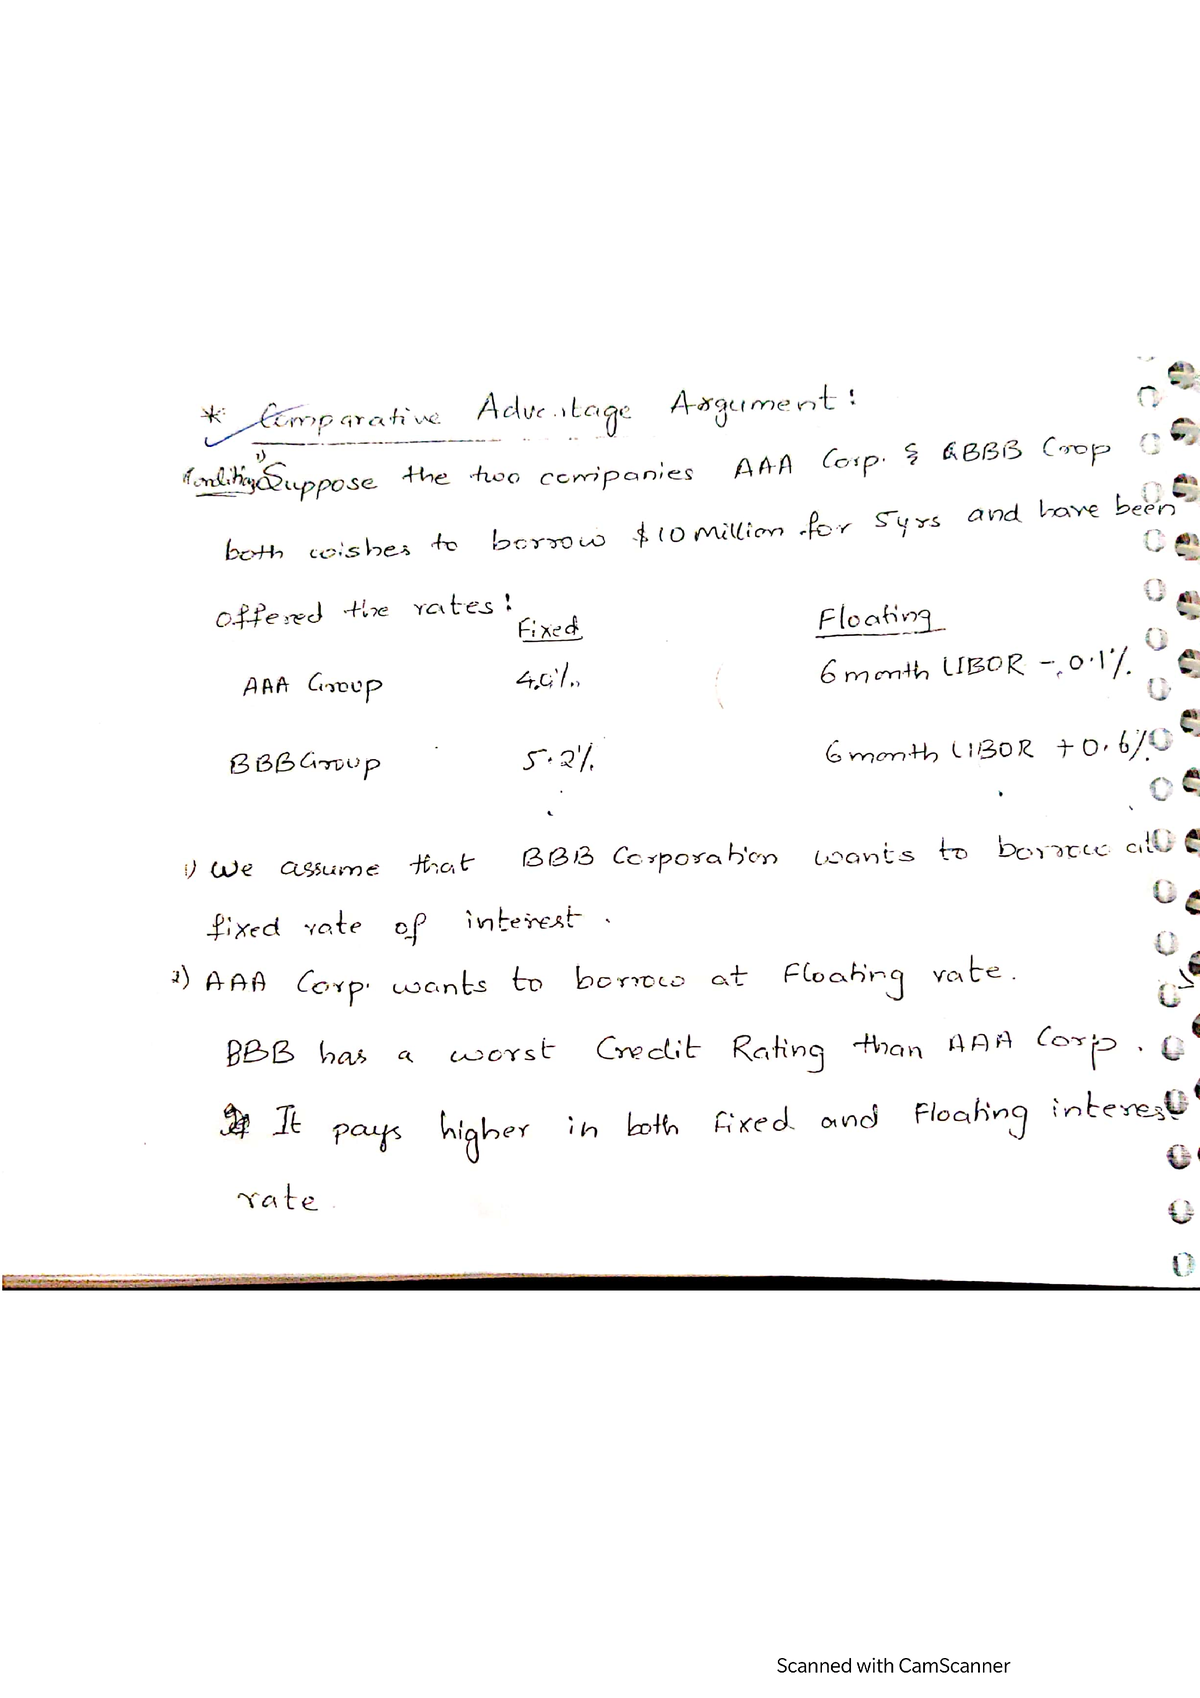 * Comparative Advantage Argument:
1)
Condition Suppose the two companies AAA Corp. & BBB Corp
both wishes to borrow $10 Million for 5yrs and have been
offered the rates:
Fixed Floating
AAA Group 6 month LIBOR - 0.1%.
BBB Group 5.2% 6 month LIBOR + 0.6%
1) We assume that BBB Corporation wants to borrow at
fixed rate of interest.
2) AAA Corp. wants to borrow at Floating rate.
BBB has a worst Credit Rating than AAA Corp.
It pays higher in both fixed and Floating interest
rate.
Scanned with CamScanner